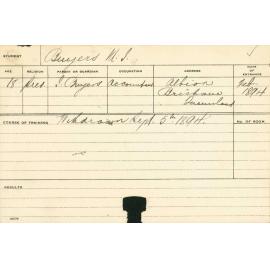 STUDENT Buyers M. J.
AGE RELIGION PARENT OR GUARDIAN OCCUPATION ADDRESS DATE OF ENTRANCE
18 Pres. J. Buyers Accountant Albion Feb.
Brisbane 1894
Queensland
COURSE OF TRAINING Withdrawn Sept 5th 1894. NO. OF ROOM
RESULTS